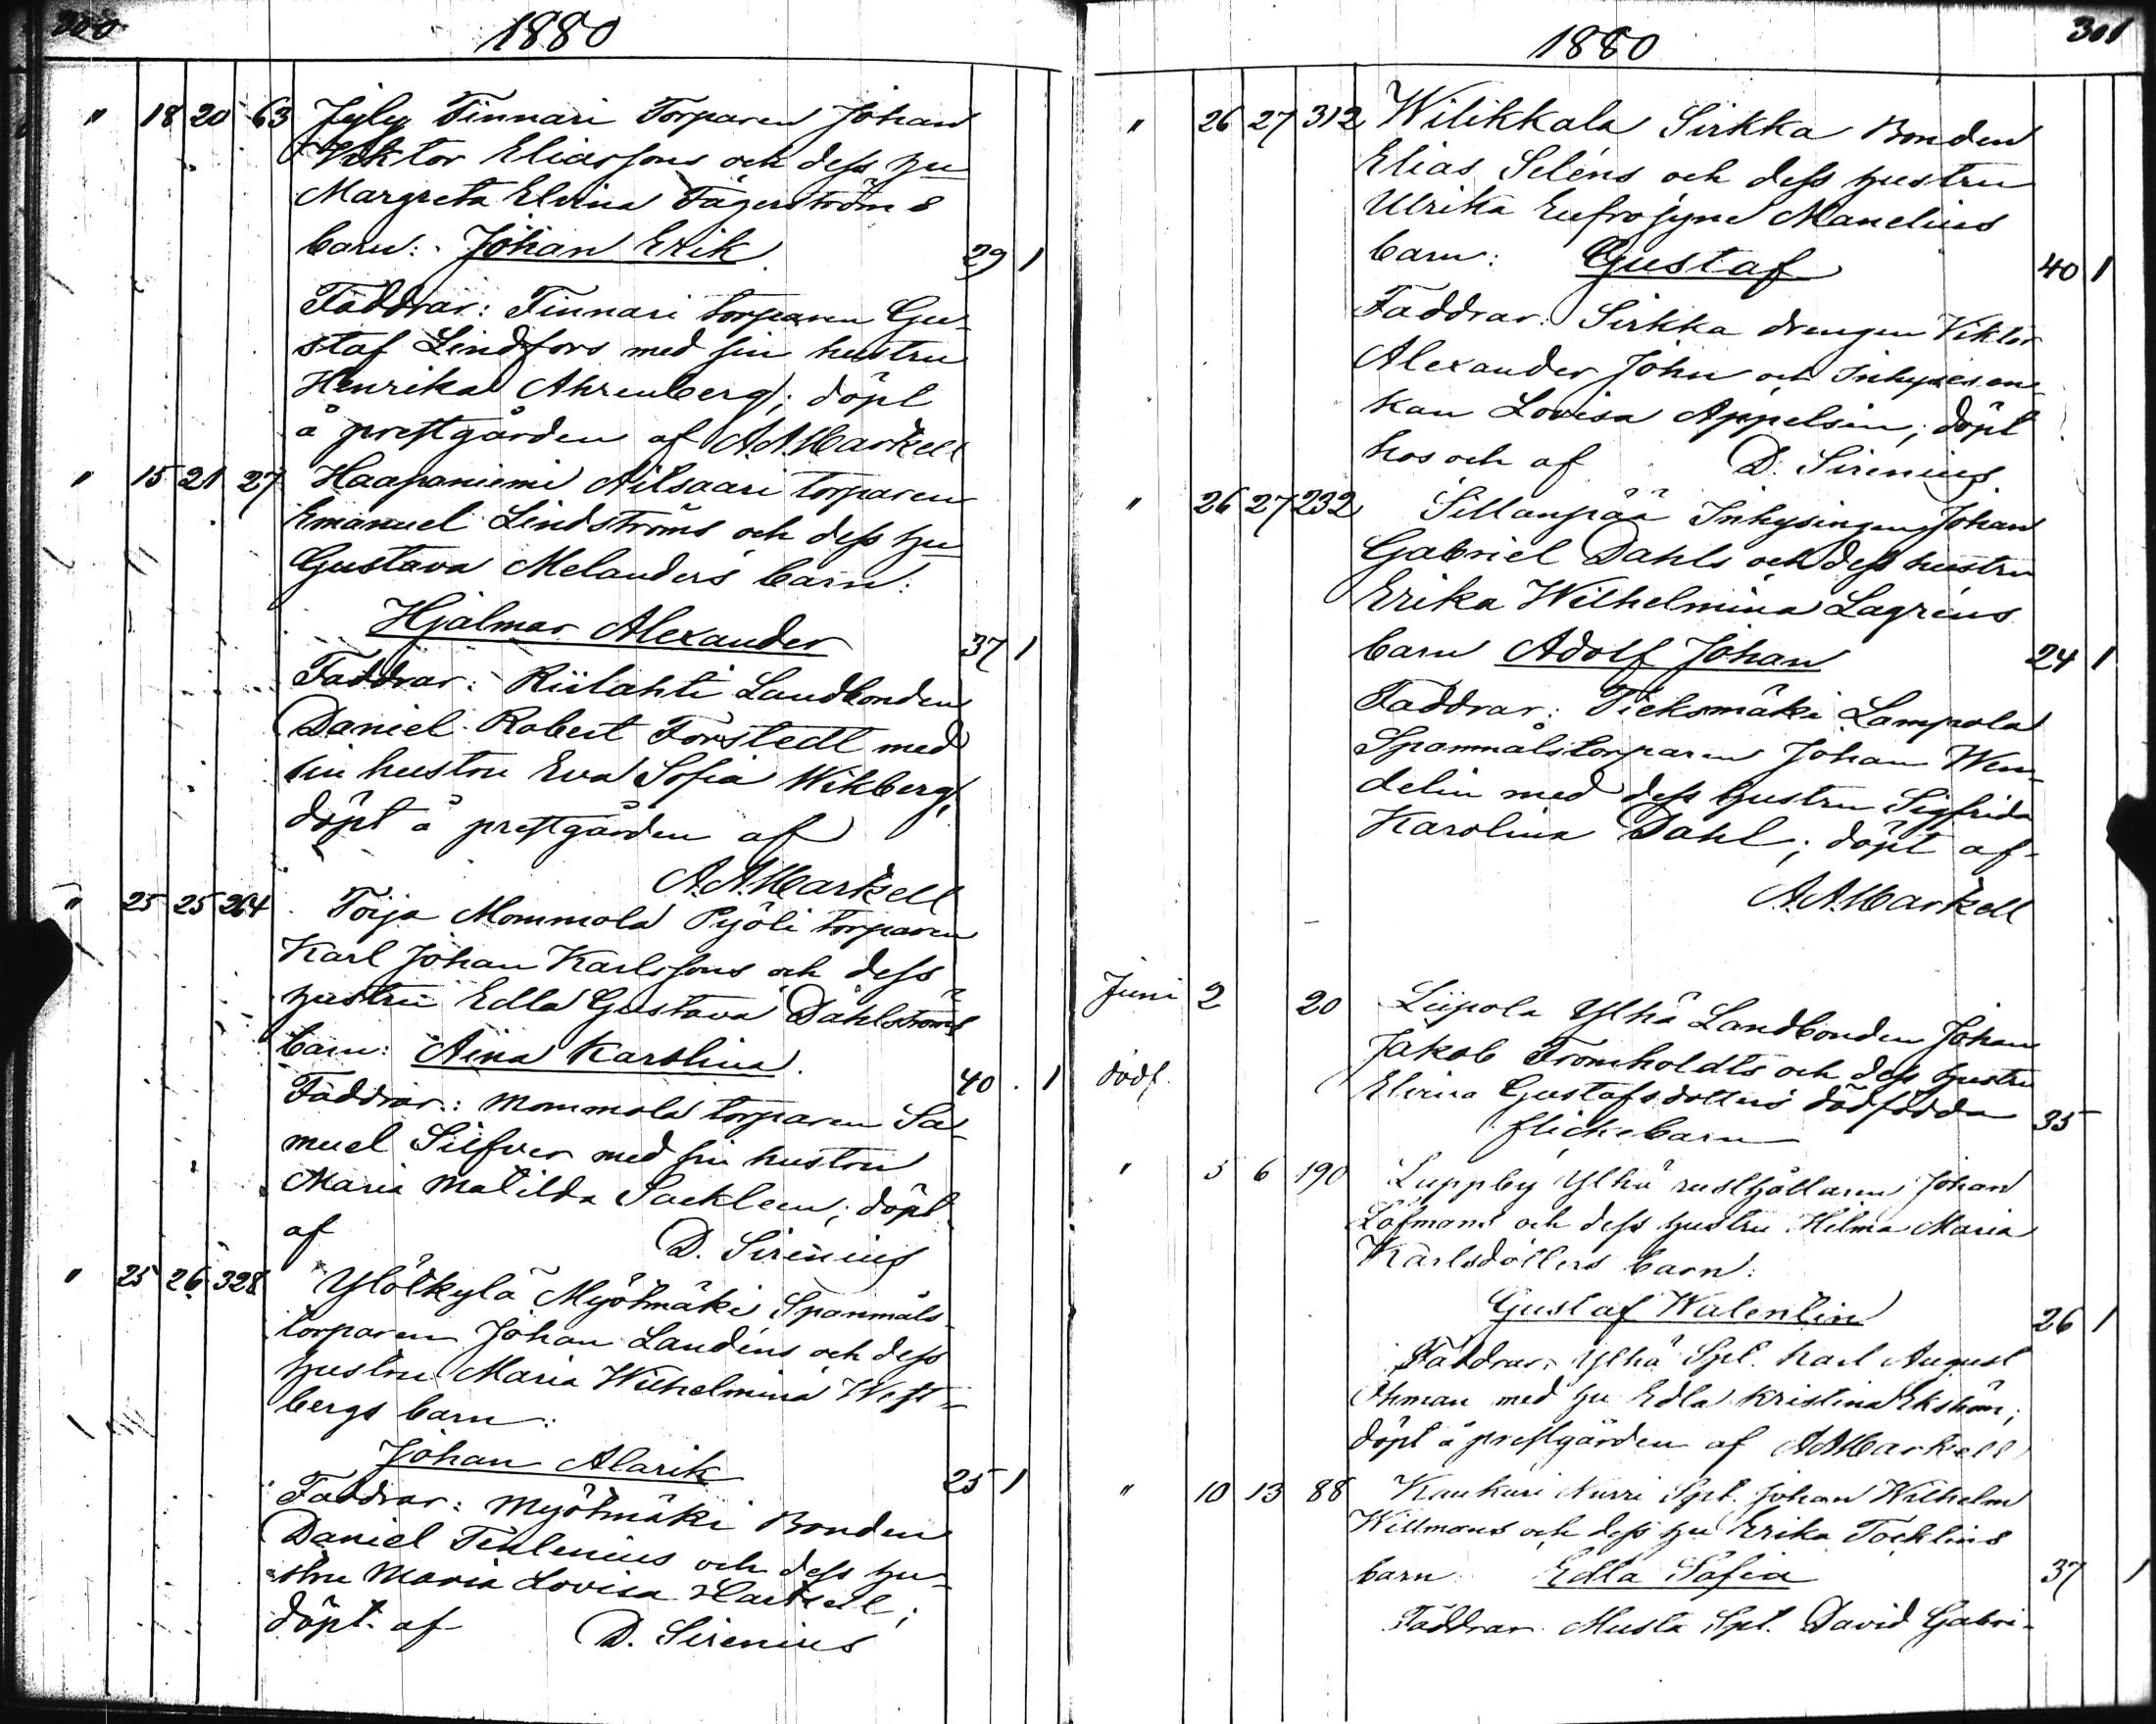 300
1880
" 18 20 63 Jyly Tinnari Torparen Johan
Viktor Eliassons och dess hu
Margreta Elvina Fagerströms
barn: Johan Erik 29 1
Faddrar: Tinnari torparen Gu-
staf Lindfors med sin hustru
Henrika Ahrenberg; döpt
å prestgården af A.A. Markell
" 15 21 27 Haapaniemi torparen
Emanuel Lindströms och dess hu
Gustava Melanders barn:
Hjalmar Alexander 37 1
Faddrar: Riilahti Landbonden
Daniel Robert Forstedt med
sin hustru Eva Sofia Wikberg,
döpt å prestgården af
A.A. Markell
" 25 25 264 Toija Mommola Pyöli torparen
Karl Johan Karlssons och dess
hustru Edla Gustava Dahlströms
barn: Aina Karolina. 40 1
Faddrar: Mommola torparen Sa-
muel Silfver med sin hustru
Maria Matilda Sackleen; döpt
af D. Sirenius
" 25 26 328 Ylölkylä Myötmäki Spanmåls-
torparen Johan Landéns och dess
hustru Maria Wilhelmina West-
bergs barn:
Johan Alarik 25 1
Faddrar: Myötmäki Bonden
Daniel Tenlenius och dess hu-
stru Maria Lovisa ;
döpt af D. Sirenius
1880
301
" 26 27 312 Wilikkala Sirkka Bonden
Elias Seléns och dess hustru
Ulrika Eufrosyne Manelius
barn: Gustaf 40 1
Faddrar: Sirkka drengen Viktor
Alexander John och Inhyses en-
kan Lovisa Appelsin; döpt
hos och af D. Sirenius
" 26 27 232 Sillanpää Inhysingen Johan
Gabriel Dahls och dess hustru
Erika Wilhelmina Lagréns
barn Adolf Johan 24 1
Faddrar: Tieksmäki Lampola
Spanmålstorparen Johan Wen-
delin med dess hustru Sigfrida
Karolina Dahl; döpt af
A.A. Markell
Juni 2 20 Liipola Ylhä Landbonden Johan
Jakob Fromholdts och dess hustru
dödf. Elvina Gustafsdotters dödfödda 35
flickebarn
" 5 6 190 Luppby Ylhä rusthållaren Johan
Löfmans och dess hustru Hilma Maria
Karlsdotters barn:
Gustaf Walentin 26 1
Faddrar: Ylhä Spt. Karl August
Öhman med hu Edla Kristina Ekström;
döpt å prestgården af A.A. Markell
" 10 13 88 Kaukuri Nurri Spt. Johan Wilhelm
Willmans och dess hu Erika Tocklins
barn: Edla Sofia 37 1
Faddrar: Musta Spt. David Gabri-